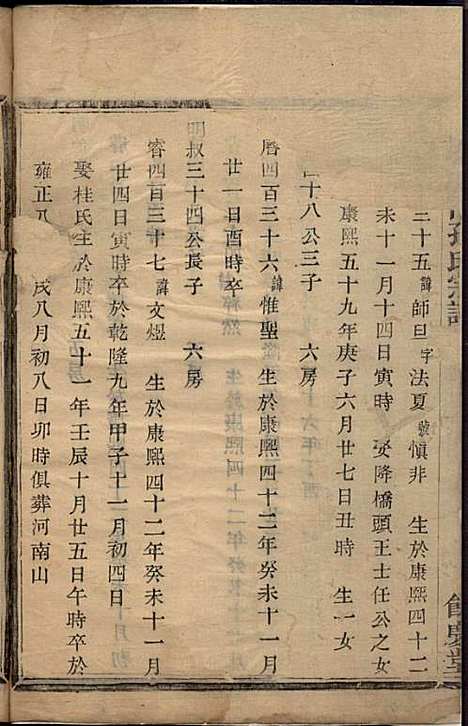 氏宗譜
二十五諱師旦字法夏號慎非　生於康熙四十二
未十一月十四日寅時　受降橋頭王士任公之女
康熙五十九年庚子六月廿七日丑時　生一女
十八公三子　六房
曆四百三十六諱惟聖　生於康熙四十二年癸未十一月
廿一日酉時卒
明叔三十四公長子　六房
睿四百三十七諱文煜　生於康熙四十二年癸未十一月
廿四日寅時卒於乾隆九年甲子十一月初四日
娶桂氏生於康熙五十一年壬辰十月廿五日午時卒於
雍正八　戌八月初八日卯時俱葬河南山